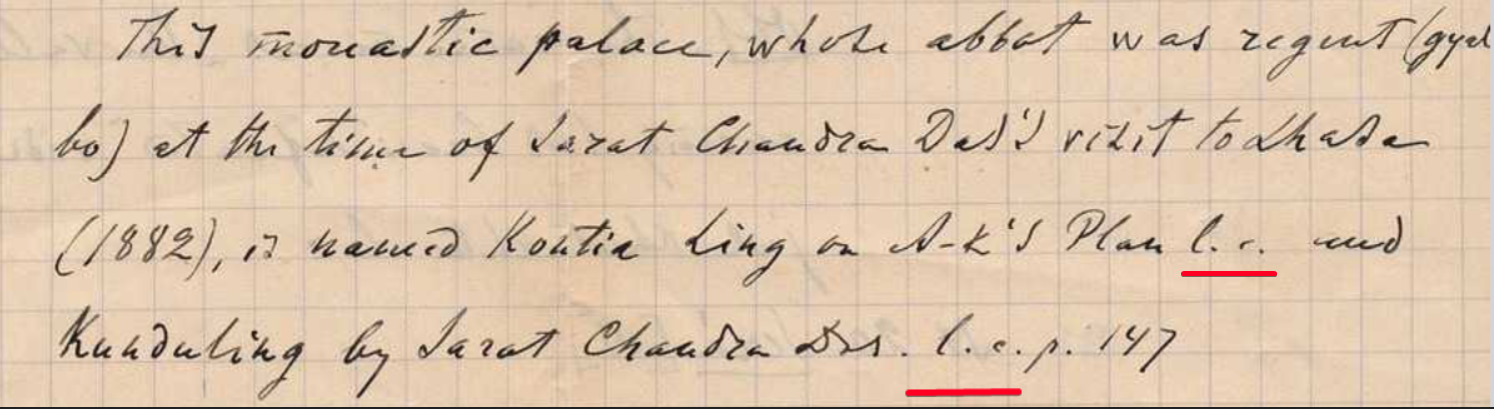 This monastic palace, whose abbot was regent (gyal
bo) at the time of Sarat Chandra Das's visit to Lhasa
(1882), is named Kontia Ling on A-K's Plan l. c. and
Kunduling by Sarat Chandra Das. l. c. p. 147